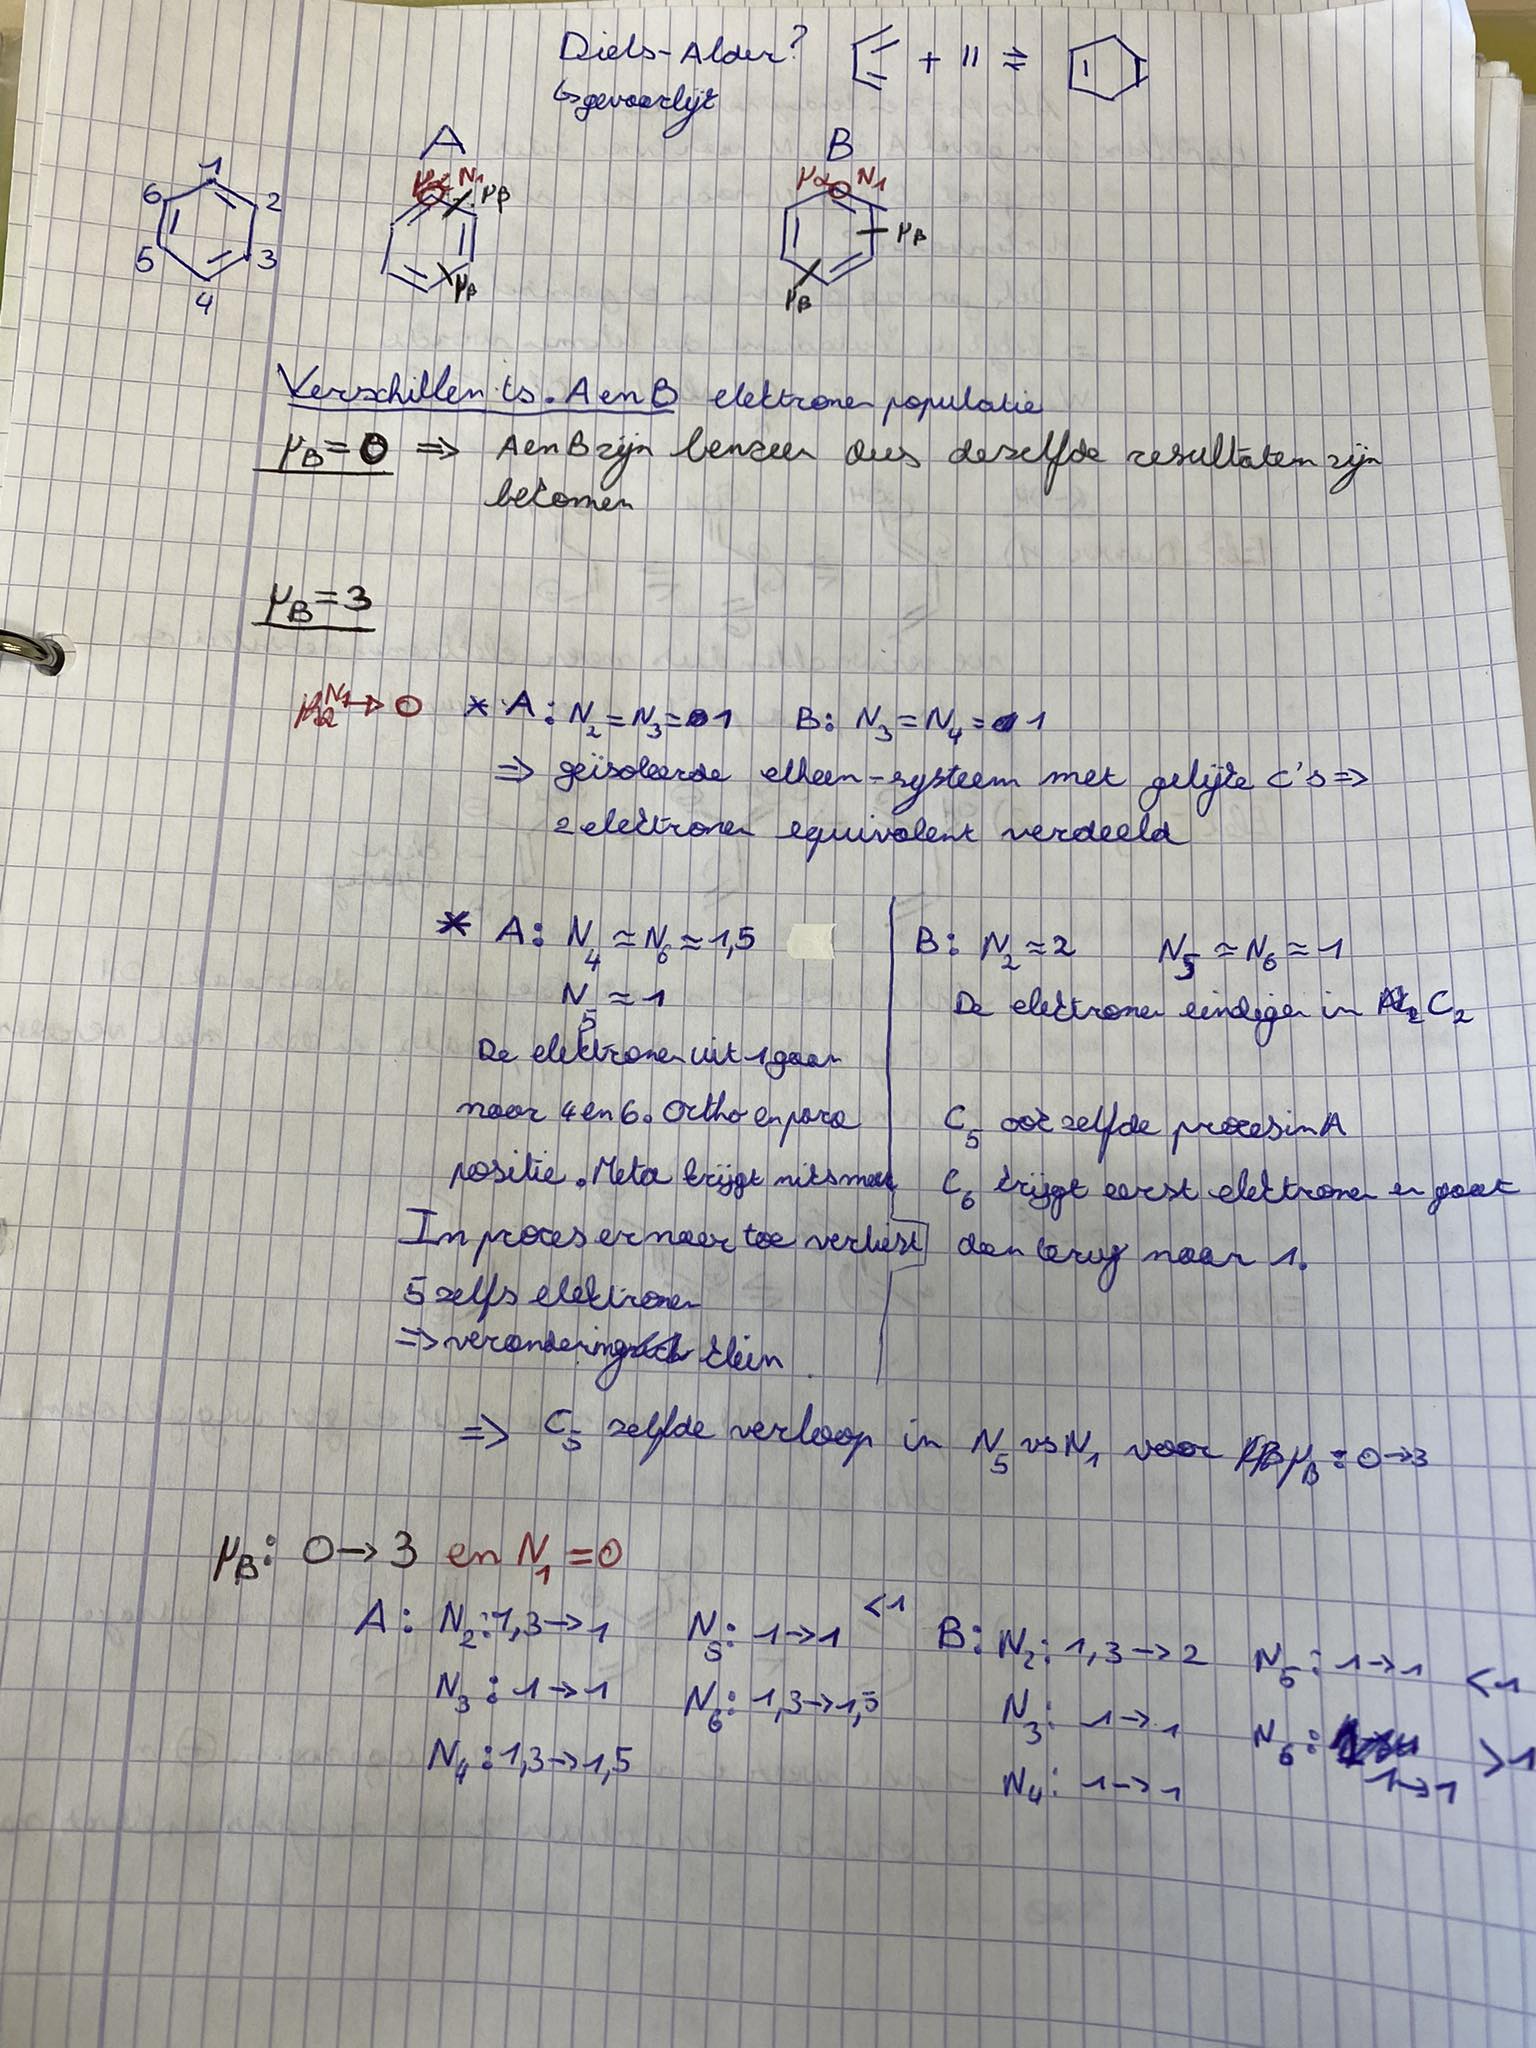 Diels-Alder? + = ⇌
↳ gevaarlijk
A B
μα N1 μα N1
1
6 2
5 3
4
μB
μB
μB
μB
Verschillen ts. A en B elektronen populatie
μB = 0 ⇒ A en B zijn benzeen dus dezelfde resultaten zijn
bekomen
μB = 3
N1 → 0 * A: N2 = N3 = 1 B: N3 = N4 = 1
⇒ geïsoleerde etheen-systeem met gelijke C's ⇒
2 elektronen equivalent verdeeld
* A: N4 ≈ N6 ≈ 1,5
N5 ≈ 1
De elektronen uit 1 gaan
naar 4 en 6. Ortho en para
positie. Meta krijgt niks meer
In proces ernaar toe verliest
5 zelfs elektronen
⇒ verandering klein
B: N2 ≈ 2 N5 ≈ N6 ≈ 1
De elektronen eindigen in C2
C5 ook zelfde proces in A
C6 krijgt eerst elektronen en gaat
dan terug naar 1.
⇒ C5 zelfde verloop in N5 vs N1 voor μB: 0→3
μB: 0→3 en N1 = 0
A: N2: 1,3→1 N5: 1→1 <1
N3: 1→1 N6: 1,3→1,5
N4: 1,3→1,5
B: N2: 1,3→2 N5: 1→1 <1
N3: 1→1 N6: 1→1 >1
N4: 1→1